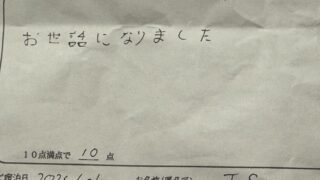 お世話になりました
10点満点で 10 点
宿泊日